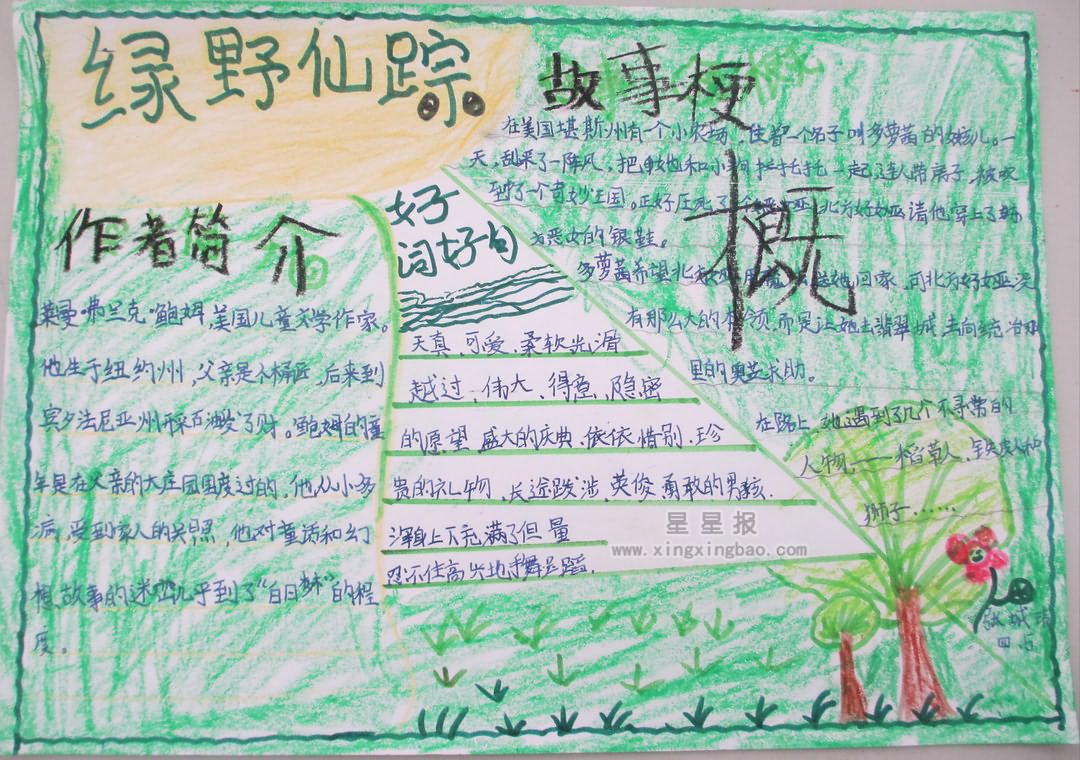 绿野仙踪
作者简介
莱曼·弗兰克·鲍姆,美国儿童文学作家。
他生于纽约州,父亲是个桶匠,后来到
宾夕法尼亚州开采石油发了财。鲍姆的童
年是在父亲的大庄园里度过的。他从小多
病,受到家人的关照,他对童话和幻
想故事的迷恋几乎到了“白日梦”的程
度。
好
词好句
天真、可爱、柔软光滑
越过、伟大、得意、隐密
的原望 盛大的庆典、依依惜别、珍
贵的礼物、长途跋涉、英俊勇敢的男孩、
浑身上下充满了但量
忍不住高兴地手舞足蹈.
故事梗概
在美国堪斯州有一个小农场,住着一个名子叫多萝茜的女孩儿。一
天,刮来了一阵风,把她和小狗托托一起连人带房子,被吹
到了一个奇妙王国。正好压死了 北方好女巫请他穿上了
恶女的银鞋。
多萝茜希望北 送她回家,可北方好女巫没
有那么大的本领,而是让她去翡翠城,去向统治那
里的奥芝求助。
在路上,她遇到了几个不寻常的
人物,——稻草人、铁皮人和
狮子……
星星报
www.xingxingbao.com
张
四.5